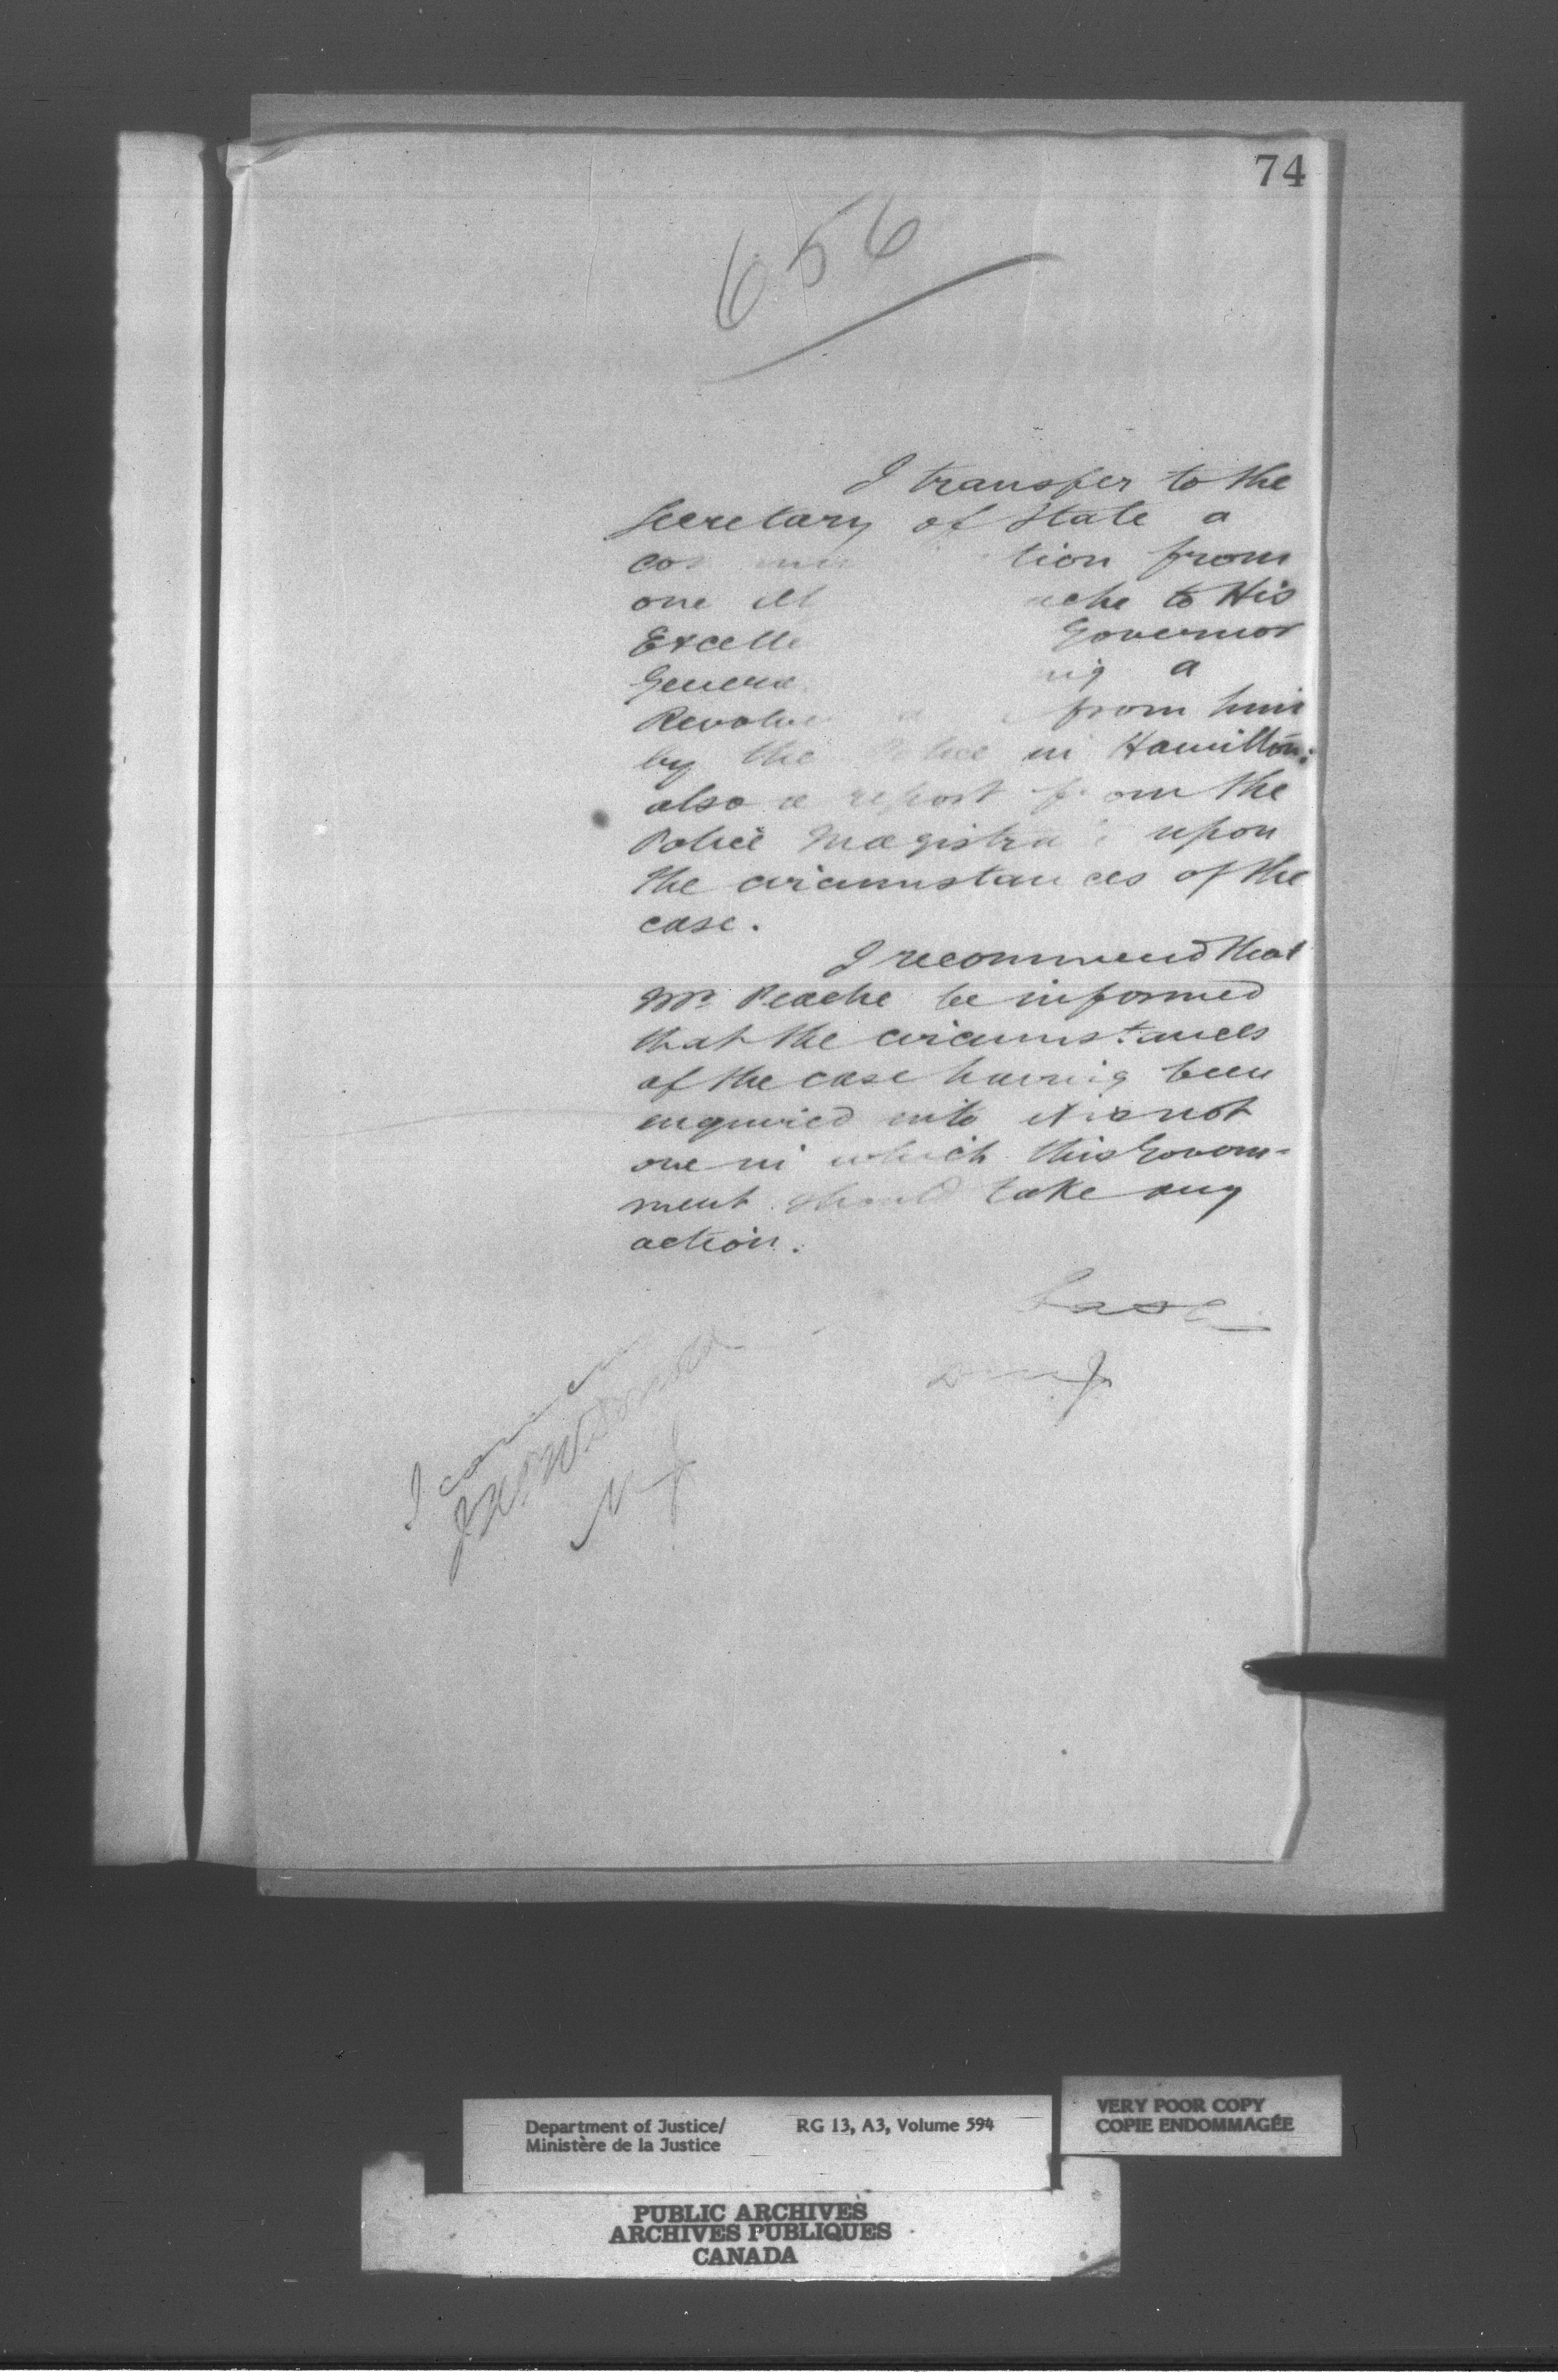 74
656
I transfer to the
Secretary of State a
tion from
one to His
Governor
a
from him
by the Police in Hamilton:
also a report from the
Police Magistrate upon
the circumstances of the
case.
I recommend that
Mr. Peache be informed
that the circumstances
of the case having been
enquired into it is not
one in which this Govern-
ment should take any
action.
Lash
D.M.J.
I concur
M J
Department of Justice/
Ministère de la Justice
RG 13, A3, Volume 594
VERY POOR COPY
COPIE ENDOMMAGÉE
PUBLIC ARCHIVES
ARCHIVES PUBLIQUES
CANADA